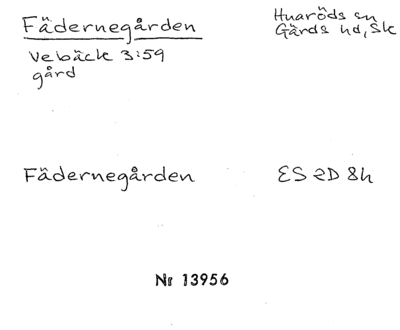 Fädernegården
Huaröds sn
Gärds hd, Sk
Vebäck 3:59
gård
Fädernegården
ES 2D 8h
Nr 13956